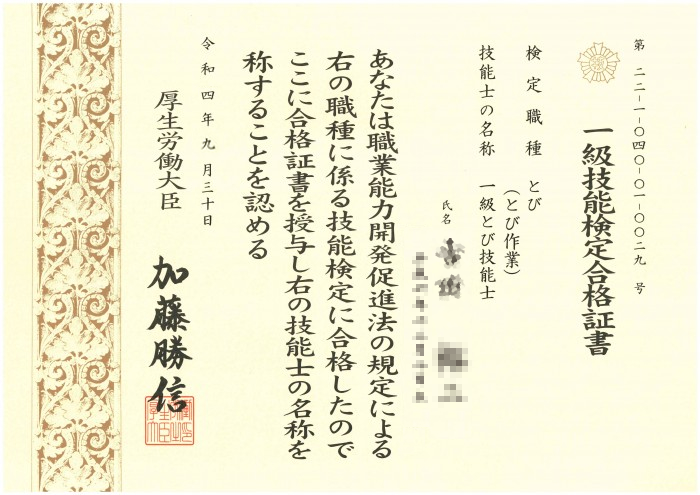 第 二二-一-〇四〇-〇一-〇〇二九 号
一級技能検定合格証書
検定職種 とび
(とび作業)
技能士の名称 一級とび技能士
氏名
あなたは職業能力開発促進法の規定による
右の職種に係る技能検定に合格したので
ここに合格証書を授与し右の技能士の名称を
称することを認める
令和四年九月三十日
厚生労働大臣
加藤勝信